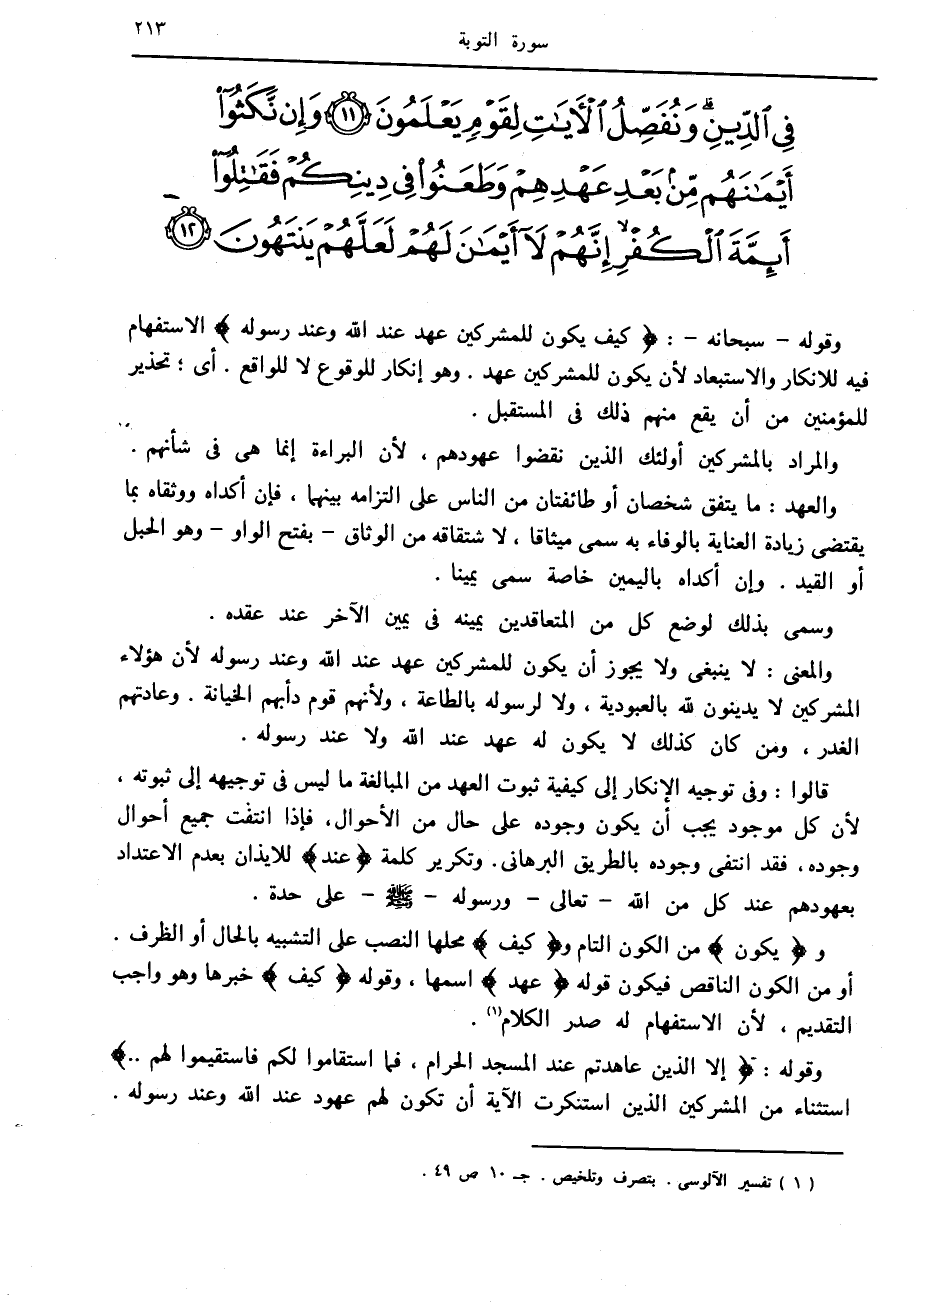 ٢١٣
سورة التوبة
فِى ٱلدِّينِ ۗ وَنُفَصِّلُ ٱلْأَيَٰتِ لِقَوْمٍ يَعْلَمُونَ ﴿١١﴾ وَإِن نَّكَثُوٓا۟
أَيْمَٰنَهُم مِّنۢ بَعْدِ عَهْدِهِمْ وَطَعَنُوا۟ فِى دِينِكُمْ فَقَٰتِلُوٓا۟
أَئِمَّةَ ٱلْكُفْرِ ۙ إِنَّهُمْ لَآ أَيْمَٰنَ لَهُمْ لَعَلَّهُمْ يَنتَهُونَ ﴿١٢﴾
وقوله - سبحانه - : ﴿ كيف يكون للمشركين عهد عند الله وعند رسوله ﴾ الاستفهام
فيه للانكار والاستبعاد لأن يكون للمشركين عهد . وهو إنكار للوقوع لا للواقع . أى : تحذير
للمؤمنين من أن يقع منهم ذلك فى المستقبل .
والمراد بالمشركين أولئك الذين نقضوا عهودهم ، لأن البراءة إنما هى فى شأنهم .
والعهد : ما يتفق شخصان أو طائفتان من الناس على التزامه بينهما ، فإن أكداه ووثقاه بما
يقتضى زيادة العناية بالوفاء به سمى ميثاقا ، لا شتقاقه من الوثاق - بفتح الواو - وهو الحبل
أو القيد . وإن أكداه باليمين خاصة سمى يمينا .
وسمى بذلك لوضع كل من المتعاقدين يمينه فى يمين الآخر عند عقده .
والمعنى : لا ينبغى ولا يجوز أن يكون للمشركين عهد عند الله وعند رسوله لأن هؤلاء
المشركين لا يدينون لله بالعبودية ، ولا لرسوله بالطاعة ، ولأنهم قوم دأبهم الخيانة . وعادتهم
الغدر ، ومن كان كذلك لا يكون له عهد عند الله ولا عند رسوله .
قالوا : وفى توجيه الإنكار إلى كيفية ثبوت العهد من المبالغة ما ليس فى توجيهه إلى ثبوته ،
لأن كل موجود يجب أن يكون وجوده على حال من الأحوال، فإذا انتفت جميع أحوال
وجوده، فقد انتفى وجوده بالطريق البرهانى. وتكرير كلمة ﴿عند﴾ للايذان بعدم الاعتداد
بعهودهم عند كل من الله - تعالى - ورسوله - ﷺ - على حدة .
و ﴿ يكون ﴾ من الكون التام و﴿ كيف ﴾ محلها النصب على التشبيه بالحال أو الظرف .
أو من الكون الناقص فيكون قوله ﴿ عهد ﴾ اسمها ، وقوله ﴿ كيف ﴾ خبرها وهو واجب
التقديم ، لأن الاستفهام له صدر الكلام(١) .
وقوله : ﴿ إلا الذين عاهدتم عند المسجد الحرام ، فما استقاموا لكم فاستقيموا لهم ..﴾
استثناء من المشركين الذين استنكرت الآية أن تكون لهم عهود عند الله وعند رسوله .
(١) تفسير الآلوسى . بتصرف وتلخيص . جـ ١٠ ص ٤٩ .